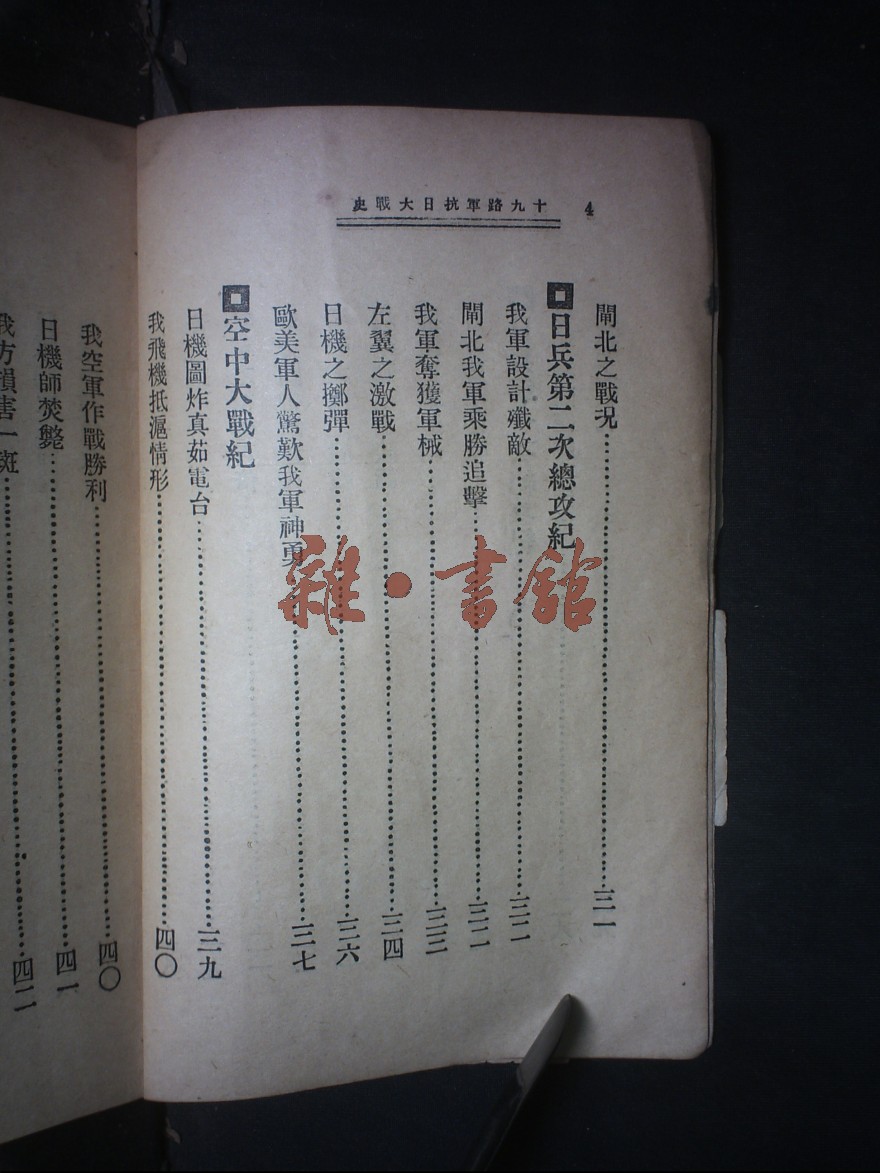 十九路軍抗日大戰史 4
閘北之戰況 三一
日兵第二次總攻紀
我軍設計殲敵 三二
閘北我軍乘勝追擊 三二
我軍奪獲軍械 三三
左翼之激戰 三四
日機之擲彈 三六
歐美軍人驚歎我軍神勇 三七
空中大戰紀
日機圖炸真茹電台 三九
我飛機抵滬情形 四〇
我空軍作戰勝利 四〇
日機師焚斃 四一
我方損害一斑 四二
雜·書館